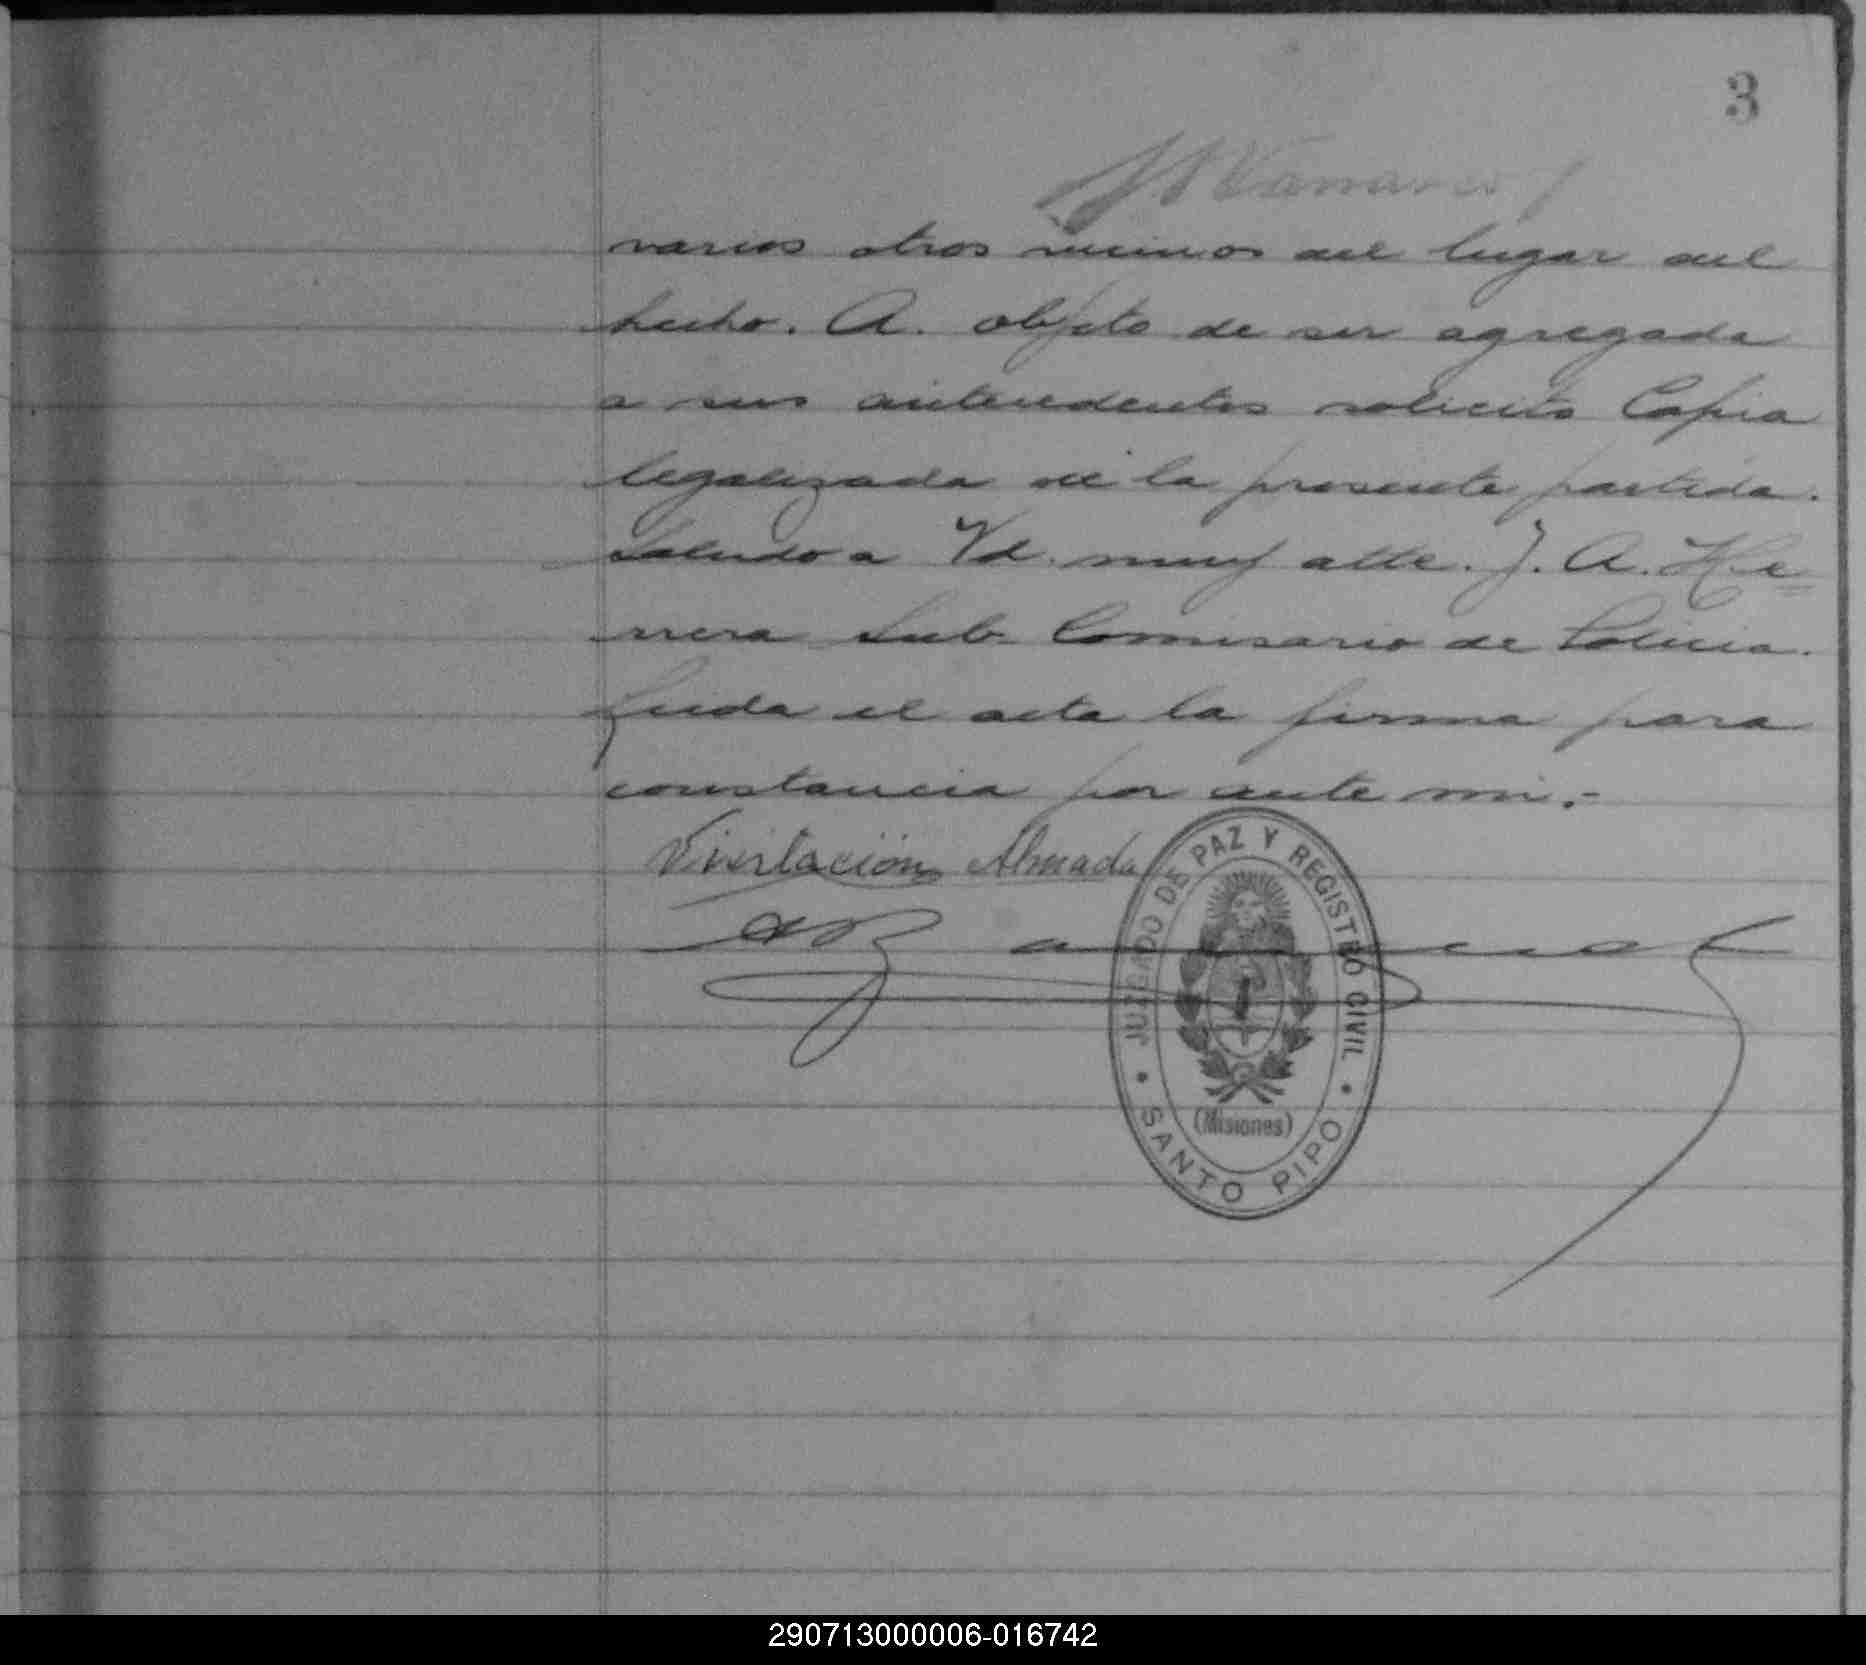 3
varios otros vecinos del lugar del
hecho. A. objeto de ser agregada
a sus antecedentes solicito Copia
legalizada de la presente partida.
Saludo a Vd. muy atte. J. A. He=
rrera Sub-Comisario de Policia.
Leida el acta la firma para
constancia por ante mi.-
Visitación Almada
JUZGADO DE PAZ Y REGISTRO CIVIL
(Misiones)
SANTO PIPO
290713000006-016742